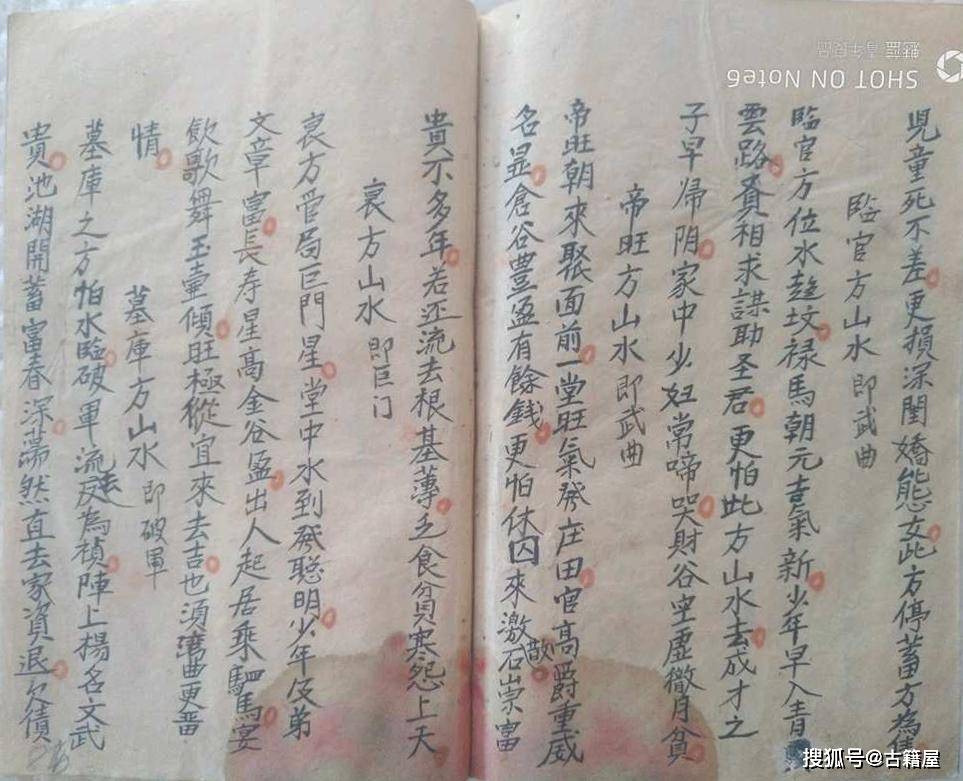 児童死不差更損深閨嬌態女此方停蓄方為佳
臨官方山水 即武曲
臨官方位水趨坟禄馬朝元喜氣新少年早入青
雲路貴相求謀助圣君更怕此方山水去成才之
子早帰阴家中少妇常啼哭財谷空虚徹月貧
帝旺方山水 即武曲
帝旺朝來聚面前一堂旺氣發庄田官高爵重威
名显倉谷豊盈有餘錢更怕休囚來激散石崇富
貴不多年若还流去根基薄乏食貧寒怨上天
衰方山水 即巨门
衰方管局巨門星堂中水到發聪明少年伎弟
文章富長寿星高金谷盈出人起居乘駟馬宴
飲歌舞玉壷傾旺極縱宜來去吉也須灣曲更畱
情
墓庫方山水 即破軍
墓庫之方怕水臨破軍流去反為禎陣上楊名文武
貴池湖開蓄富春深蕩然直去家資退欠債
SHOT ON Note6
魅蓝 青年良品
搜狐号@古籍屋